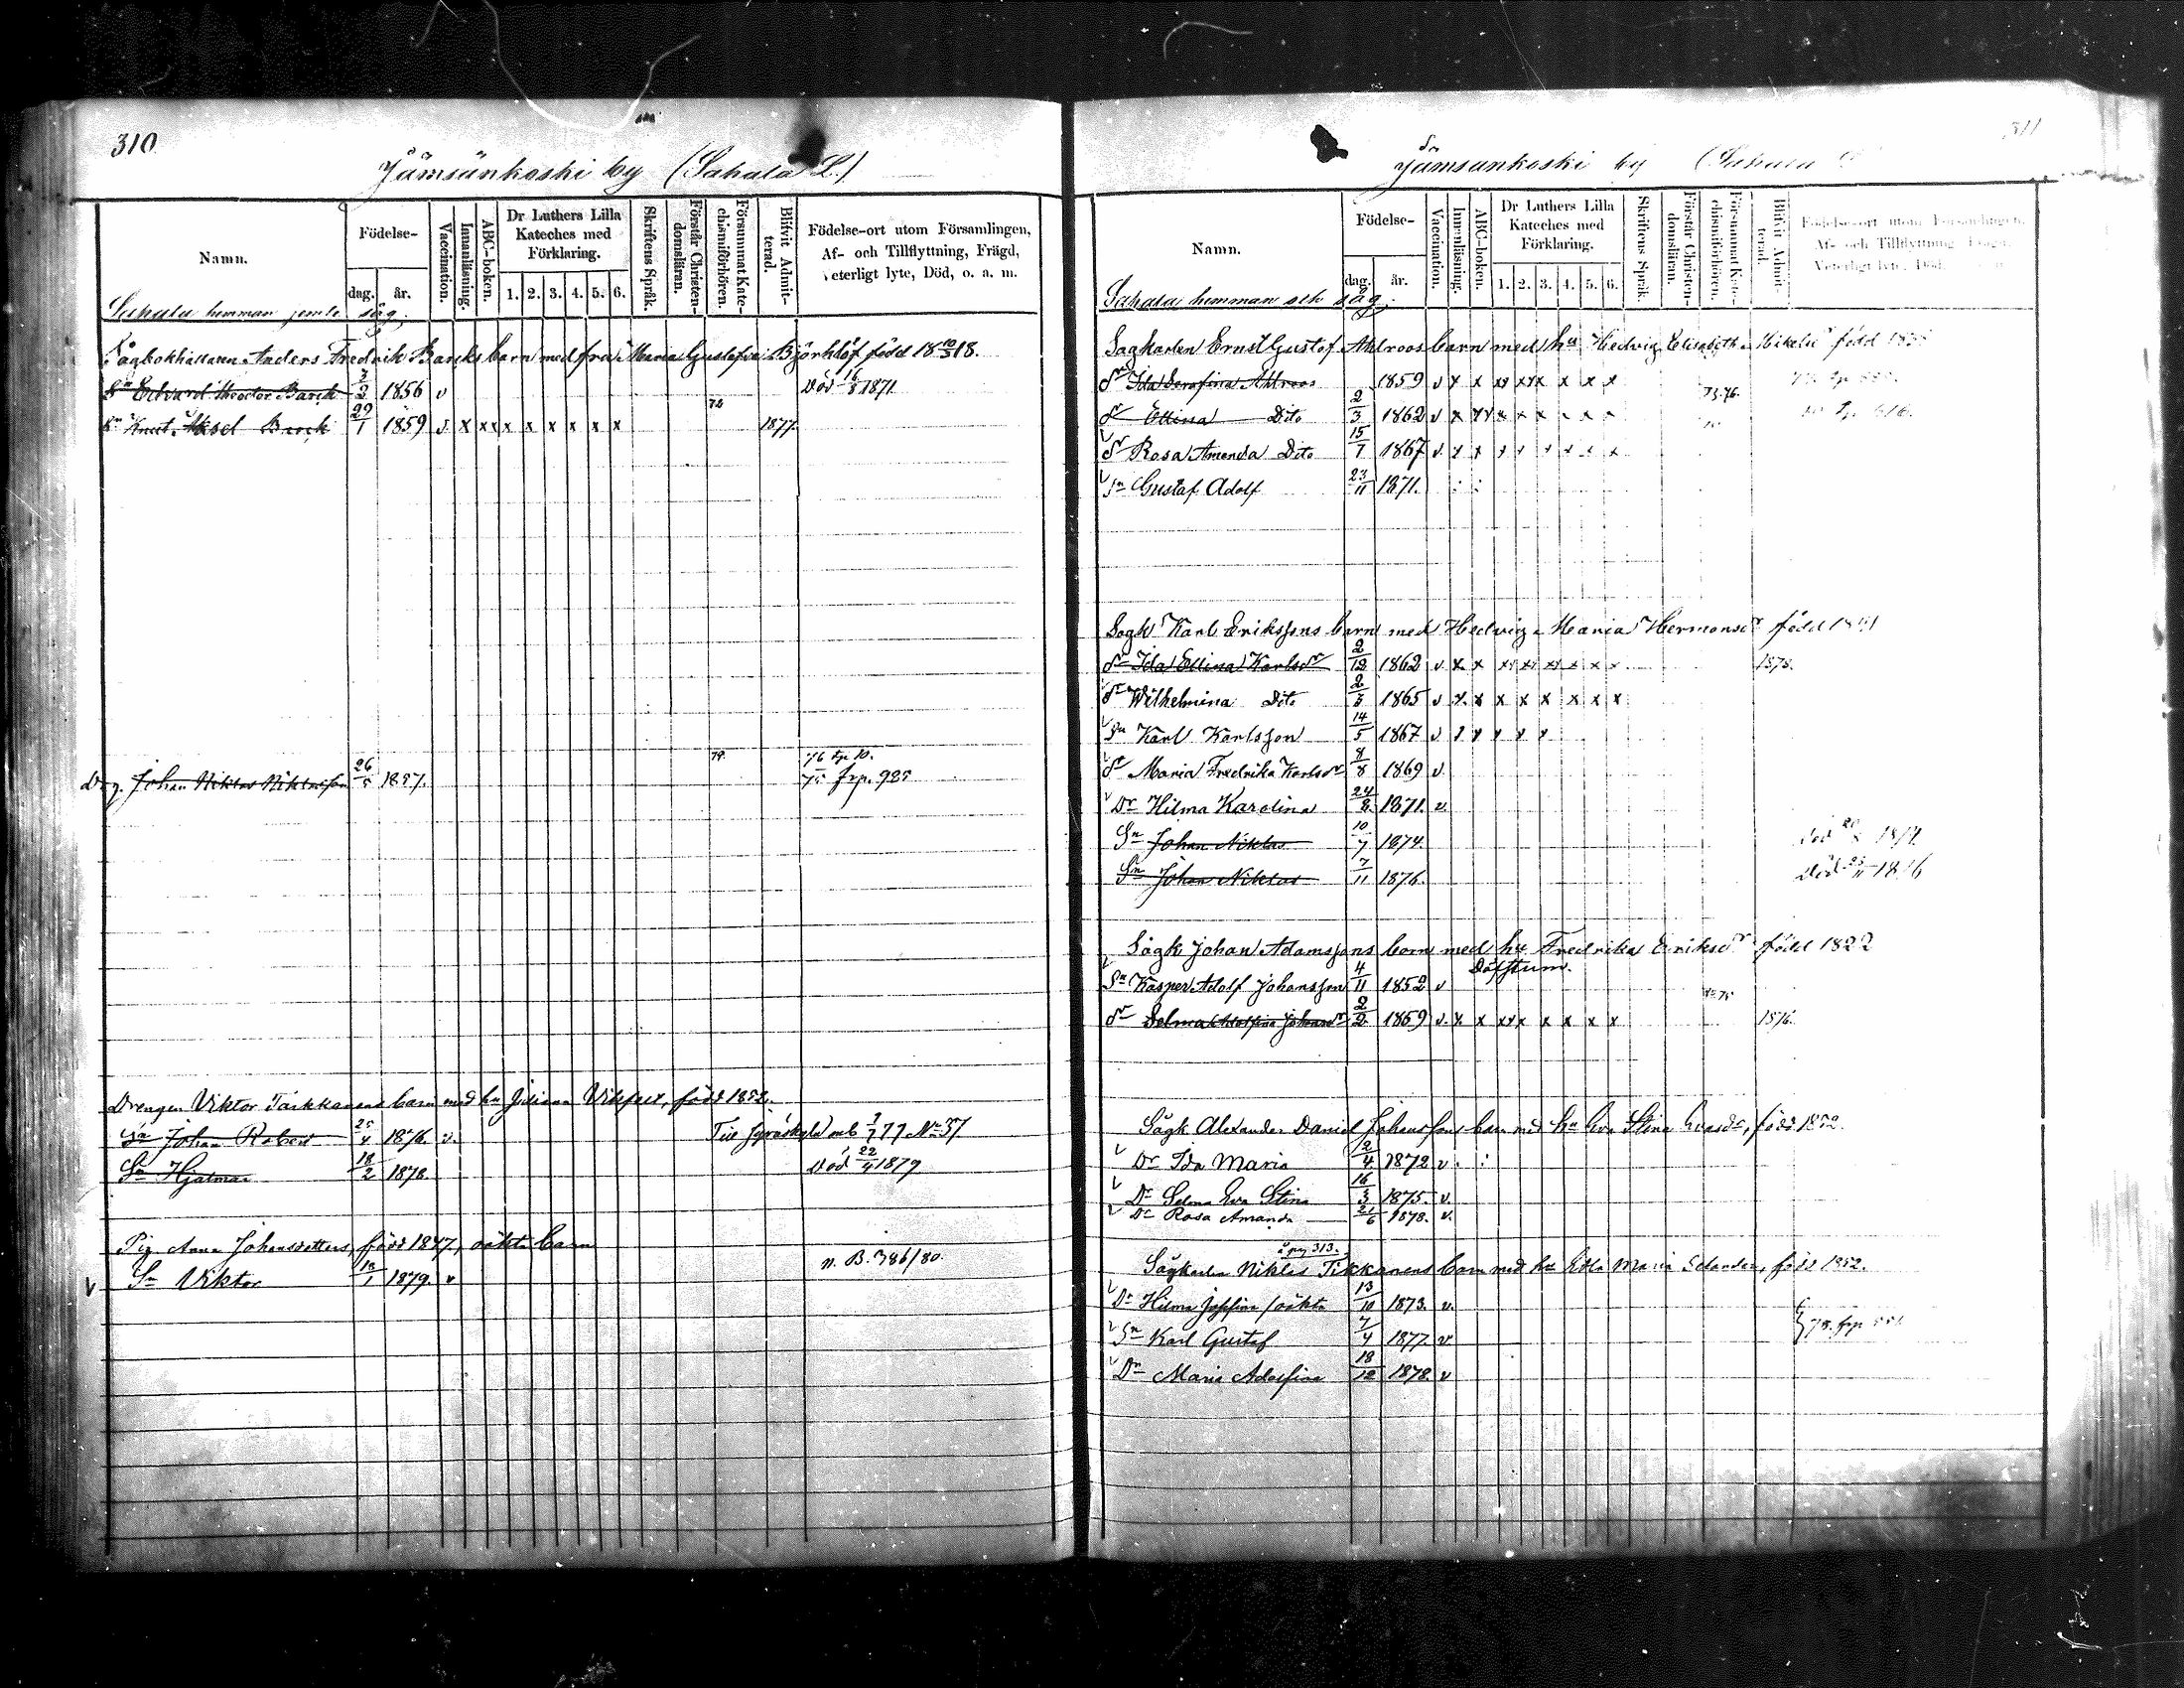 310
Jämsänkoski by (Sahala L.)
Namn.
Födelse-
dag.
år.
Vaccination.
Innanläsning.
ABC-boken.
Dr Luthers Lilla Kateches med Förklaring.
1. 2. 3. 4. 5. 6.
Skriftens Språk.
Förstår Christendomsläran.
Försummat Katechismiförhören.
Blifvit Admitterad.
Födelse-ort utom Församlingen, Af- och Tillflyttning, Frägd, Veterligt lyte, Död, o. a. m.
Sahala hemman jemte såg.
Sågbokhållaren Anders Fredrik Barcks barn med fru Maria Gustafva Björklöf född 18 10/3 18.
Sn Edvard Theodor Barck 3/2 1856 v Död 16/8 1871
Sn Knut Aksel Barck 29/1 1859 v x xx x x x x x x 72 1877.
Drg. Johan Niklas Niklasson 26/5 1857. 74. 76 frp 10.
75 frp. 925
Drengen Viktor Tarkkanens barn med hu Juliana född 1852.
Sn Johan Robert 25/4 1876. v. Till Jyväskylä mb 7/7 77 No 37
Sn Hjalmar 18/2 1878. Död 22/4 1879
Pig. Anna Johansdotters, född 1847, oäkta barn
Sn Viktor 18/1 1879. v n. B. 386/80.
311
Jämsänkoski by (Sahala
Namn.
Födelse-
dag.
år.
Vaccination.
Innanläsning.
ABC-boken.
Dr Luthers Lilla Kateches med Förklaring.
1. 2. 3. 4. 5. 6.
Skriftens Språk.
Förstår Christendomsläran.
Försummat Katechismiförhören.
Blifvit Admitterad.
Födelse-ort utom Församlingen, Af- och Tillflyttning, Frägd, Veterligt lyte, Död,
Sahala hemman och såg.
Sågkarlen Ernst Gustof Ahlroos barn med hu Hedvig Elisabeth Mikelsdr född
dr Ida Serafina Ahlroos 1859 v x x xx xx x x x x
dr Ellina Dito 2/3 1862 v x xx x x x x x x 73.76.
dr Rosa Amanda Dito 15/7 1867 v. x x x x x x x x
Sn Gustaf Adolf 23/11 1871.
Sågk Karl Erikssons barn med Hedvig Maria Hermansdr född
dr Ida Ellina Karlsdr 2/12 1862 v x x xx xx xx x x x 1878.
dr Wilhelmina Dito 2/3 1865 v x x x x x x x x
Sn Karl Karlsson 14/5 1867 v x x x x x
dr Maria Fredrika Karlsdr 8/8 1869 v.
Dr Hilma Karolina 24/8 1871. v.
Sn Johan Niklas 10/7 1874.
Sn Johan Niklas 7/11 1876. Död 25/11 1876
Sågk Johan Adamssons barn med hu Fredrika Eriksdr född 1822
Sn Kasper Adolf Johansson 4/11 1852 v Döfstum.
dr Selma Adolfina Johansdr 2/2 1859 v. x x xx x x x x x 1876.
Sågk Alexander Daniel Johanssons barn med hu Eva Stina född 1852.
Dr Ida Maria 2/4 1872 v.
Dr Selma Eva Stina 16/3 1875. v.
Dr Rosa Amanda 21/6 1878. v.
å pag 313.
Sågkarlen Niklas Tikkanens barn med hu Edla Maria Selander, född 1852.
Dr Hilma Josefina /oäkta 13/10 1873. v.
Sn Karl Gustaf 7/4 1877. v.
Dr Maria Adolfina 18/12 1878 v